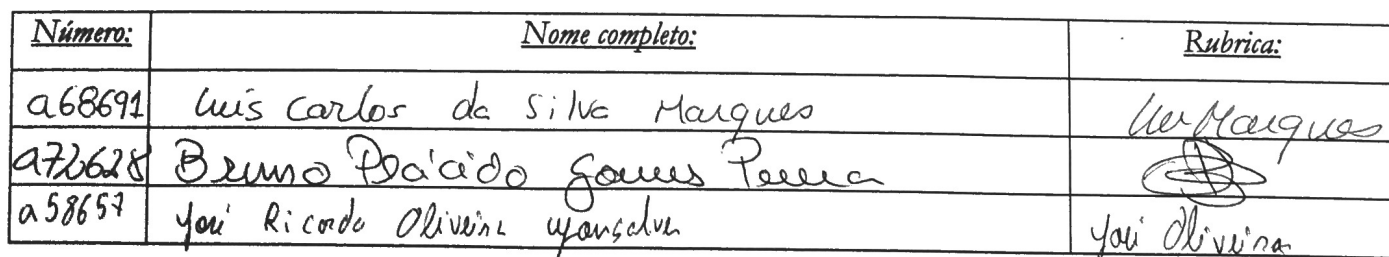 Número: Nome completo: Rubrica:
a68691 Luís Carlos da Silva Marques Luis Marques
a72628 Bruno Plácido Gomes Pereira
a58657 José Ricardo Oliveira Gonçalves José Oliveira